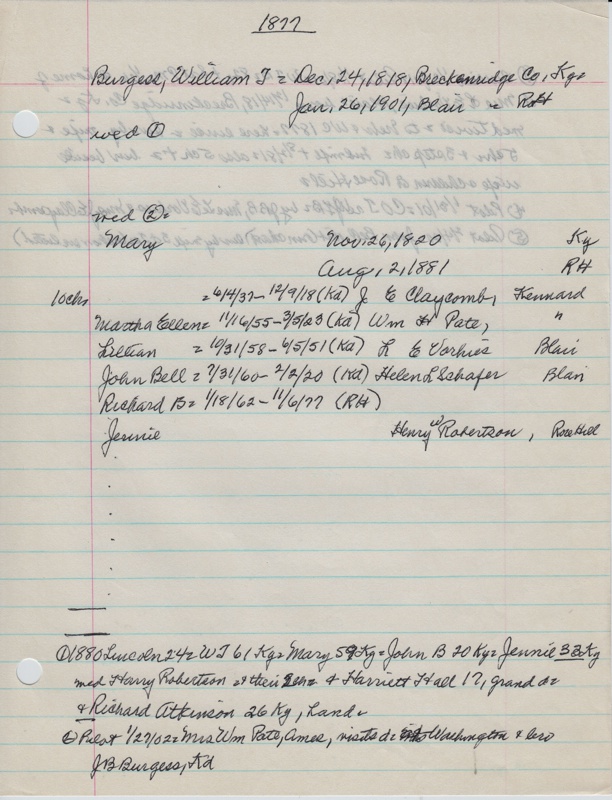 1877
Burgess, William T = Dec, 24, 1818, Breckenridge Co, Ky =
Jan, 26, 1901, Blair = RH
wed ①
wed ② =
Mary Nov. 26, 1820 Ky
Aug, 2, 1881 RH
10 chs = 6/4/37 - 12/9/18 (Kd) J E Claycomb, Kennard
Martha Ellen = 11/16/55 - 3/5/23 (Kd) Wm H Pate, "
Lillian = 10/31/58 - 6/5/51 (Kd) L E Vorhies Blair
John Bell = 7/31/60 - 2/2/20 (Kd) Helen L Schafer Blair
Richard B = 1/18/62 - 11/6/77 (RH)
Jennie Henry W Robertson, Rose Hill
① 1880 Lincoln 24 = WT 61 Ky = Mary 59 Ky = John B 20 Ky = Jennie 33 Ky
wed Harry Robertson & their 2 chs & Harriett Hall 17, grand d =
& Richard Atkinson 26 Ky, hand =
Pilot 1/27/02 = Mrs Wm Pate, Ames, visits d = Washington & bro
JB Burgess, Kd